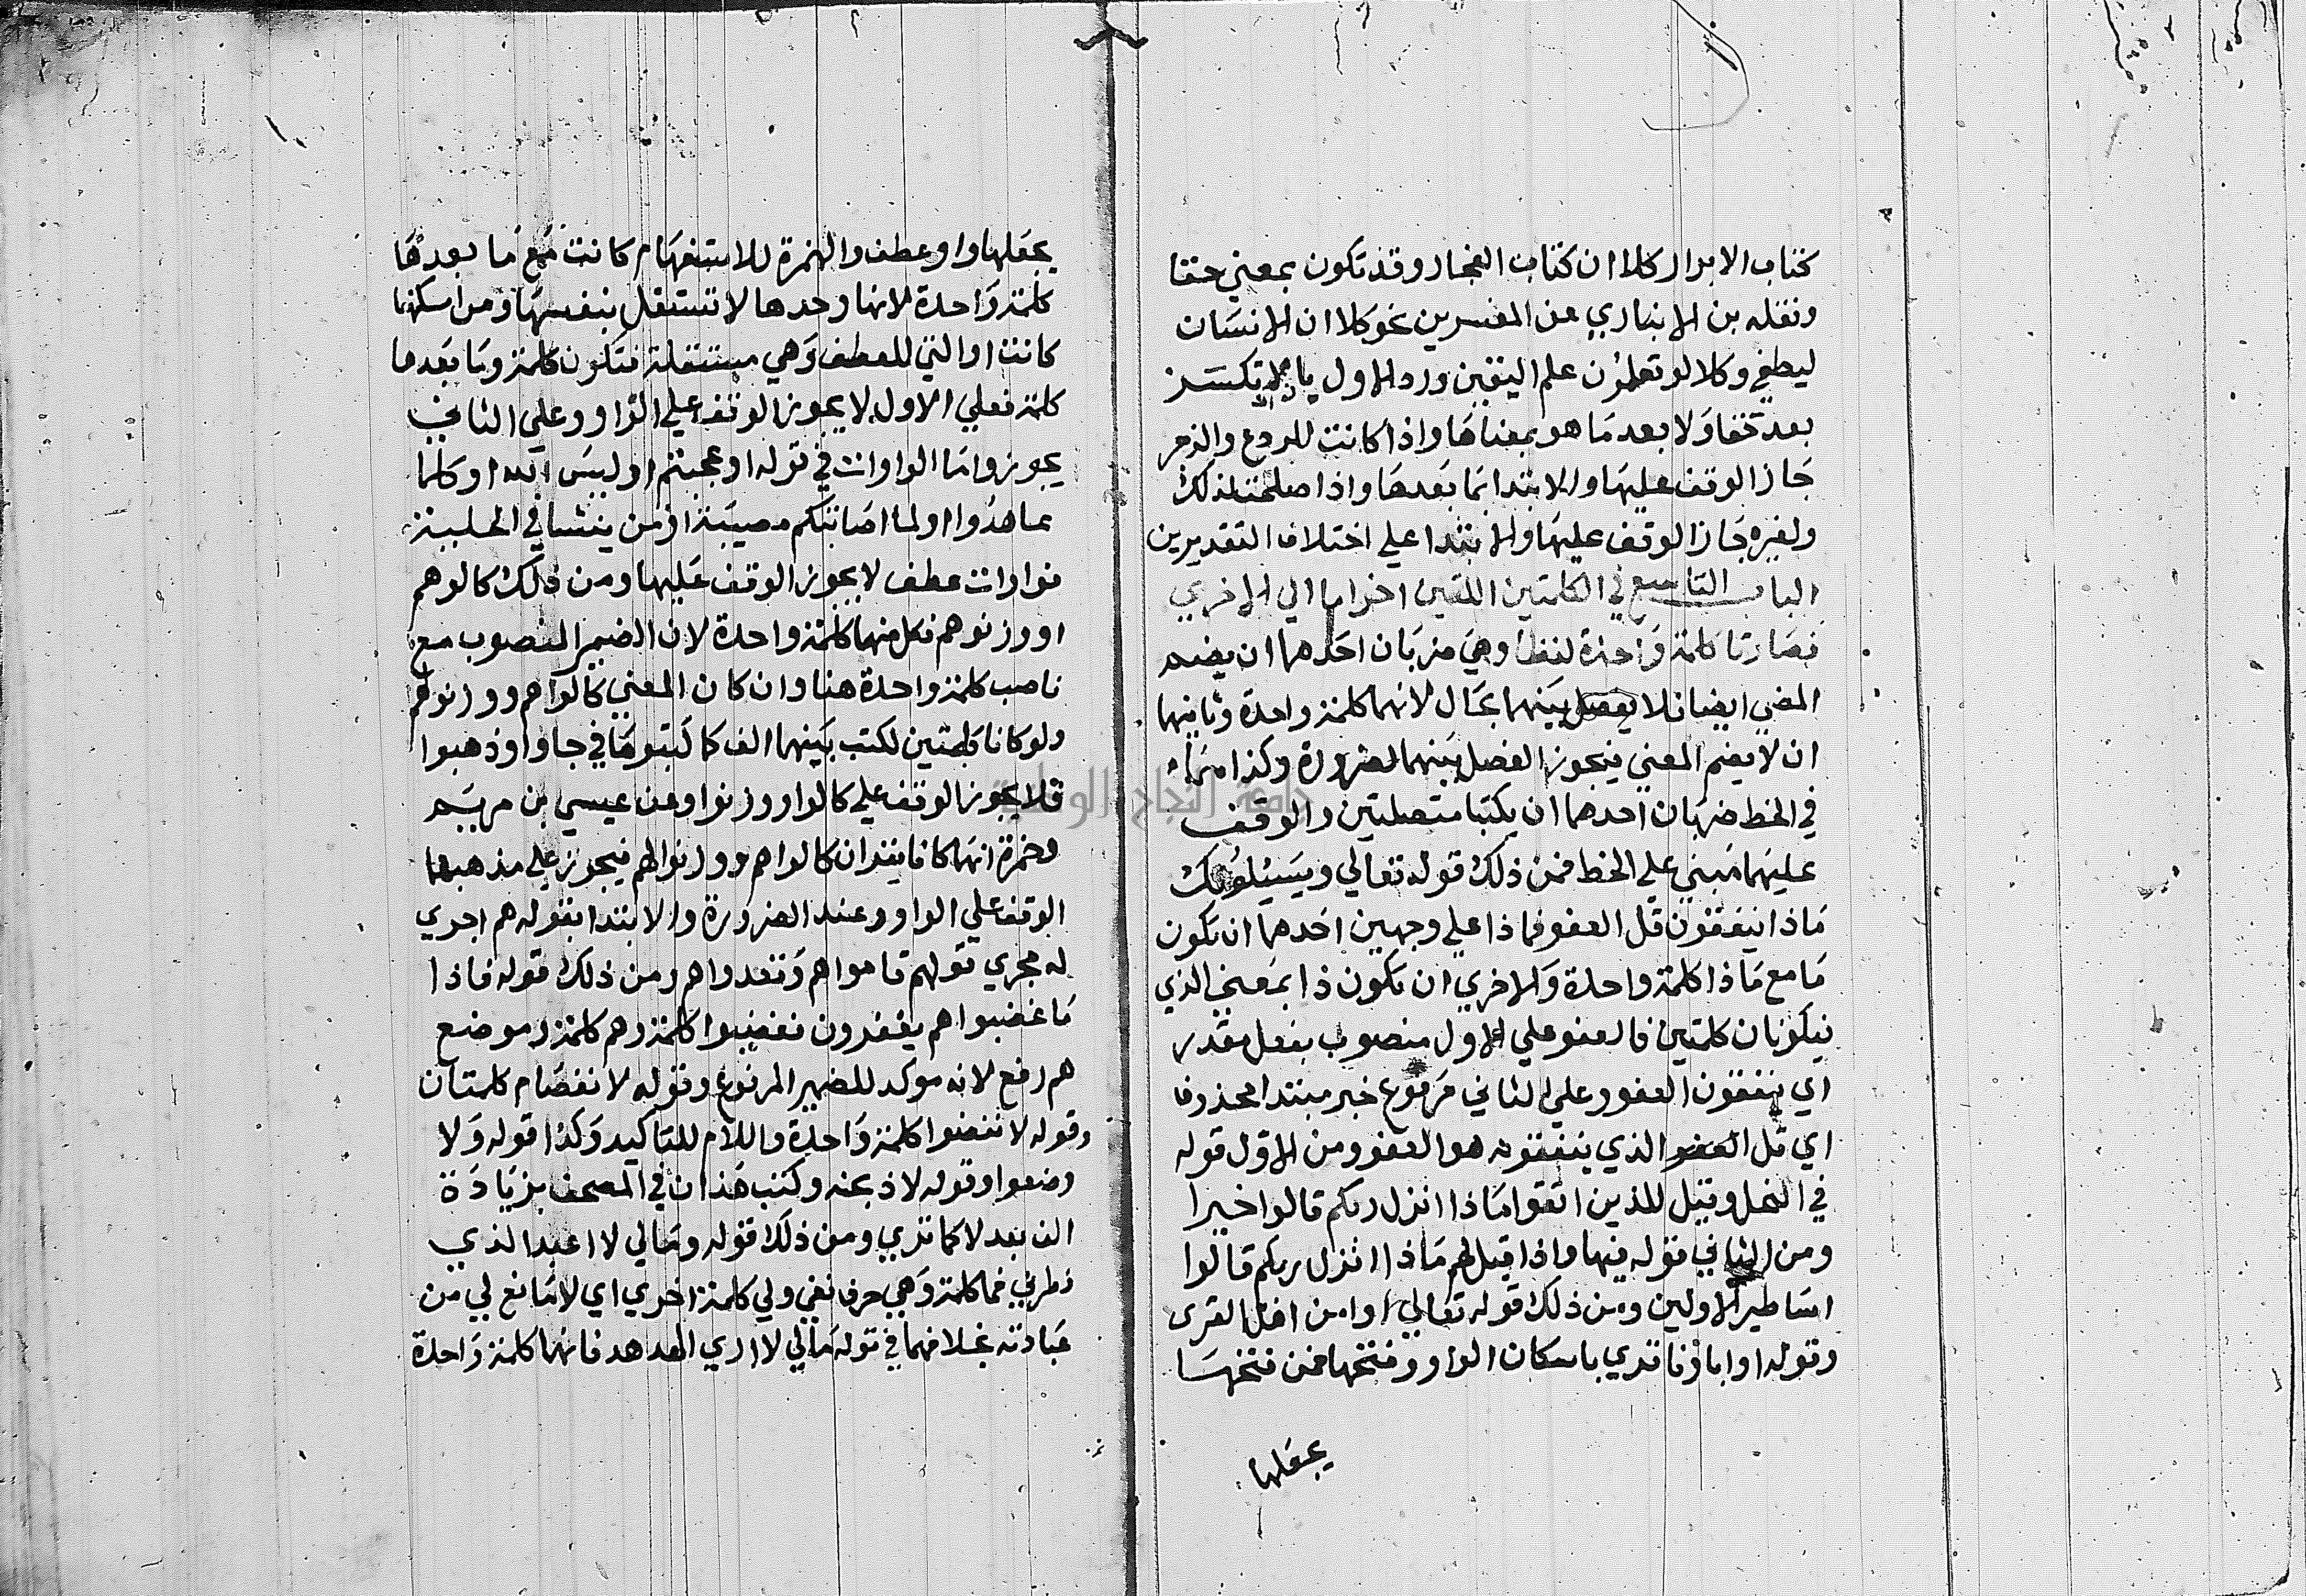 كتاب الابرار كلا ان كتاب الفجار وقد تكون بمعني حقا
ونقله بن الانباري عن المفسرين نحو كلا ان الانسان
ليطغي وكلا لو تعلمون علم اليقين ورد الاول بان تكسر
بعد حقا ولا بعد ما هو بمعناها واذا كانت للردع والزجر
جاز الوقف عليها والابتدا بما بعدها واذا صلحت لذلك
ولغيره جاز الوقف عليها والابتدا علي اختلاف التقديرين
الباب التاسع في الكلمتين اللتين احداهما الي الاخري
فصارتا كلمة واحدة لفظا وهي ضربان احدهما ان يضم
المعني ايضا فلا يفصل بينهما بحال لانهما كلمة واحدة وثانيهما
ان لا يضم المعني فيجوز الفصل بينهما لضرورة وكذا
في الخط ضربان احدهما ان يكتبا متصلتين والوقف
عليهما مبني علي الخط فمن ذلك قوله تعالي ويسيلونك
ماذا ينفقون قل العفو فماذا علي وجهين احدهما ان تكون
ما مع ماذا كلمة واحدة والاخري ان تكون ذا بمعني الذي
فيكونان كلمتين فالعفو علي الاول منصوب بفعل مقدر
اي ينفقون العفو وعلي الثاني مرفوع خبر مبتدا محذوف
اي قل العفو الذي ينفقونه هو العفو ومن الاول قوله
في النحل وقيل للذين اتقوا ماذا انزل ربكم قالوا خيرا
ومن الثاني قوله فيها واذا قيل لهم ماذا انزل ربكم قالوا
اساطير الاولين ومن ذلك قوله تعالي او امن اهل القري
وقوله او اباونا قري باسكان الواو وفتحها فمن فتحها
يجعلها
يجعلها واو عطف والهمزة للاستفهام كانت مع ما بعدها
كلمة واحدة لانها وحدها لا تستقل بنفسها ومن اسكنها
كانت او التي للعطف وهي مستقلة فتكون كلمة وما بعدها
كلمة فعلي الاول لا يجوز الوقف علي الواو وعلي الثاني
يجوز واما الواوات في قوله او عجبتم او ليس الله او كلما
عاهدوا او لما اصابتكم مصيبة او من ينشا في الحلية
فواوات عطف لا يجوز الوقف عليها ومن ذلك كالوهم
او وزنوهم فكل منهما كلمة واحدة لان الضمير المنصوب مع
ناصبه كلمة واحدة هنا وان كان المعني كالوا لهم ووزنوا لهم
ولو كانا كلمتين لكتب بينهما الف كما كتبوها في جاوا وذهبوا
فلا يجوز الوقف علي كالوا ووزنوا وعن عيسي بن مريم
وحمزة انهما كانا يقدان كالوا هم ووزنوا لهم فيجوز علي مذهبهما
الوقف علي الواو وعند الضرورة والابتدا بقوله هم اجري
له مجري قولهم قاموا هم وقعدوا هم ومن ذلك قوله فاذا
ما غضبوا هم يغفرون فغضبوا كلمة وهم كلمة وموضع
هم رفع لانه موكد للضمير المرفوع وقوله لا انفصام كلمتان
وقوله لا نفضوا كلمة واحدة واللام للتاكيد وكذا قوله ولا
وضعوا وقوله لا ذبحنه وكتب هذان في المصحف بزيادة
الف بعد لا كما تري ومن ذلك قوله ومالي لا اعبد الذي
فطرني فما كلمة وهي حرف نفي ولي كلمة اخري اي لا مانع لي من
عبادته بخلافهما في قوله مالي لا اري الهدهد فانهما كلمة واحدة